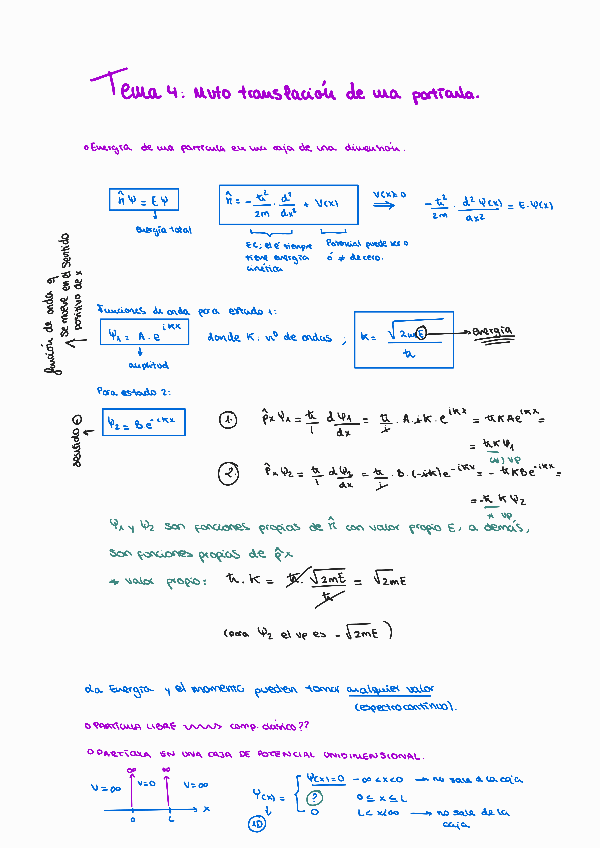 Tema 4: Mvto translación de una partícula.
○ Energía de una partícula en una caja de una dimensión.
Ĥ Ψ = E Ψ
Energía total
Ĥ = - ħ²/2m · d²/dx² + V(x)
EC; el e⁻ siempre tiene energía cinética
Potencial puede ser 0 ó ≠ de cero.
V(x)=0 ⟹ - ħ²/2m · d²Ψ(x)/dx² = E·Ψ(x)
función de onda q se mueve en el sentido positivo de x
Funciones de onda para estado 1:
Ψ₁ = A·e^(iKx) donde K: nº de ondas ; K = √(2mE)/ħ → energía
amplitud
Para estado 2:
sentido ⊖
Ψ₂ = B e^(-iKx)
1. p̂x Ψ₁ = ħ/i dΨ₁/dx = ħ/i · A·iK·e^(iKx) = ħKAe^(iKx) =
= ħKΨ₁
vp
2. p̂x Ψ₂ = ħ/i dΨ₂/dx = ħ/i · B·(-iK)e^(-iKx) = -ħKBe^(-iKx) =
= -ħ K Ψ₂
vp
Ψ₁ y Ψ₂ son funciones propias de Ĥ con valor propio E, a demás,
son funciones propias de p̂x
→ valor propio: ħ·K = ħ·√(2mE)/ħ = √2mE
(para Ψ₂ el vp es -√2mE)
La Energía y el momento pueden tomar cualquier valor
(espectro continuo).
○ PARTÍCULA LIBRE comp. clásico??
○ PARTÍCULA EN UNA CAJA DE POTENCIAL UNIDIMENSIONAL.
∞ ∞
V=∞ V=0 V=∞
0 L x
Ψ(x) =
1D
Ψ(x)=0 -∞<x<0 → no sale d la caja
? 0 ≤ x ≤ L
0 L<x<∞ → no sale de la caja